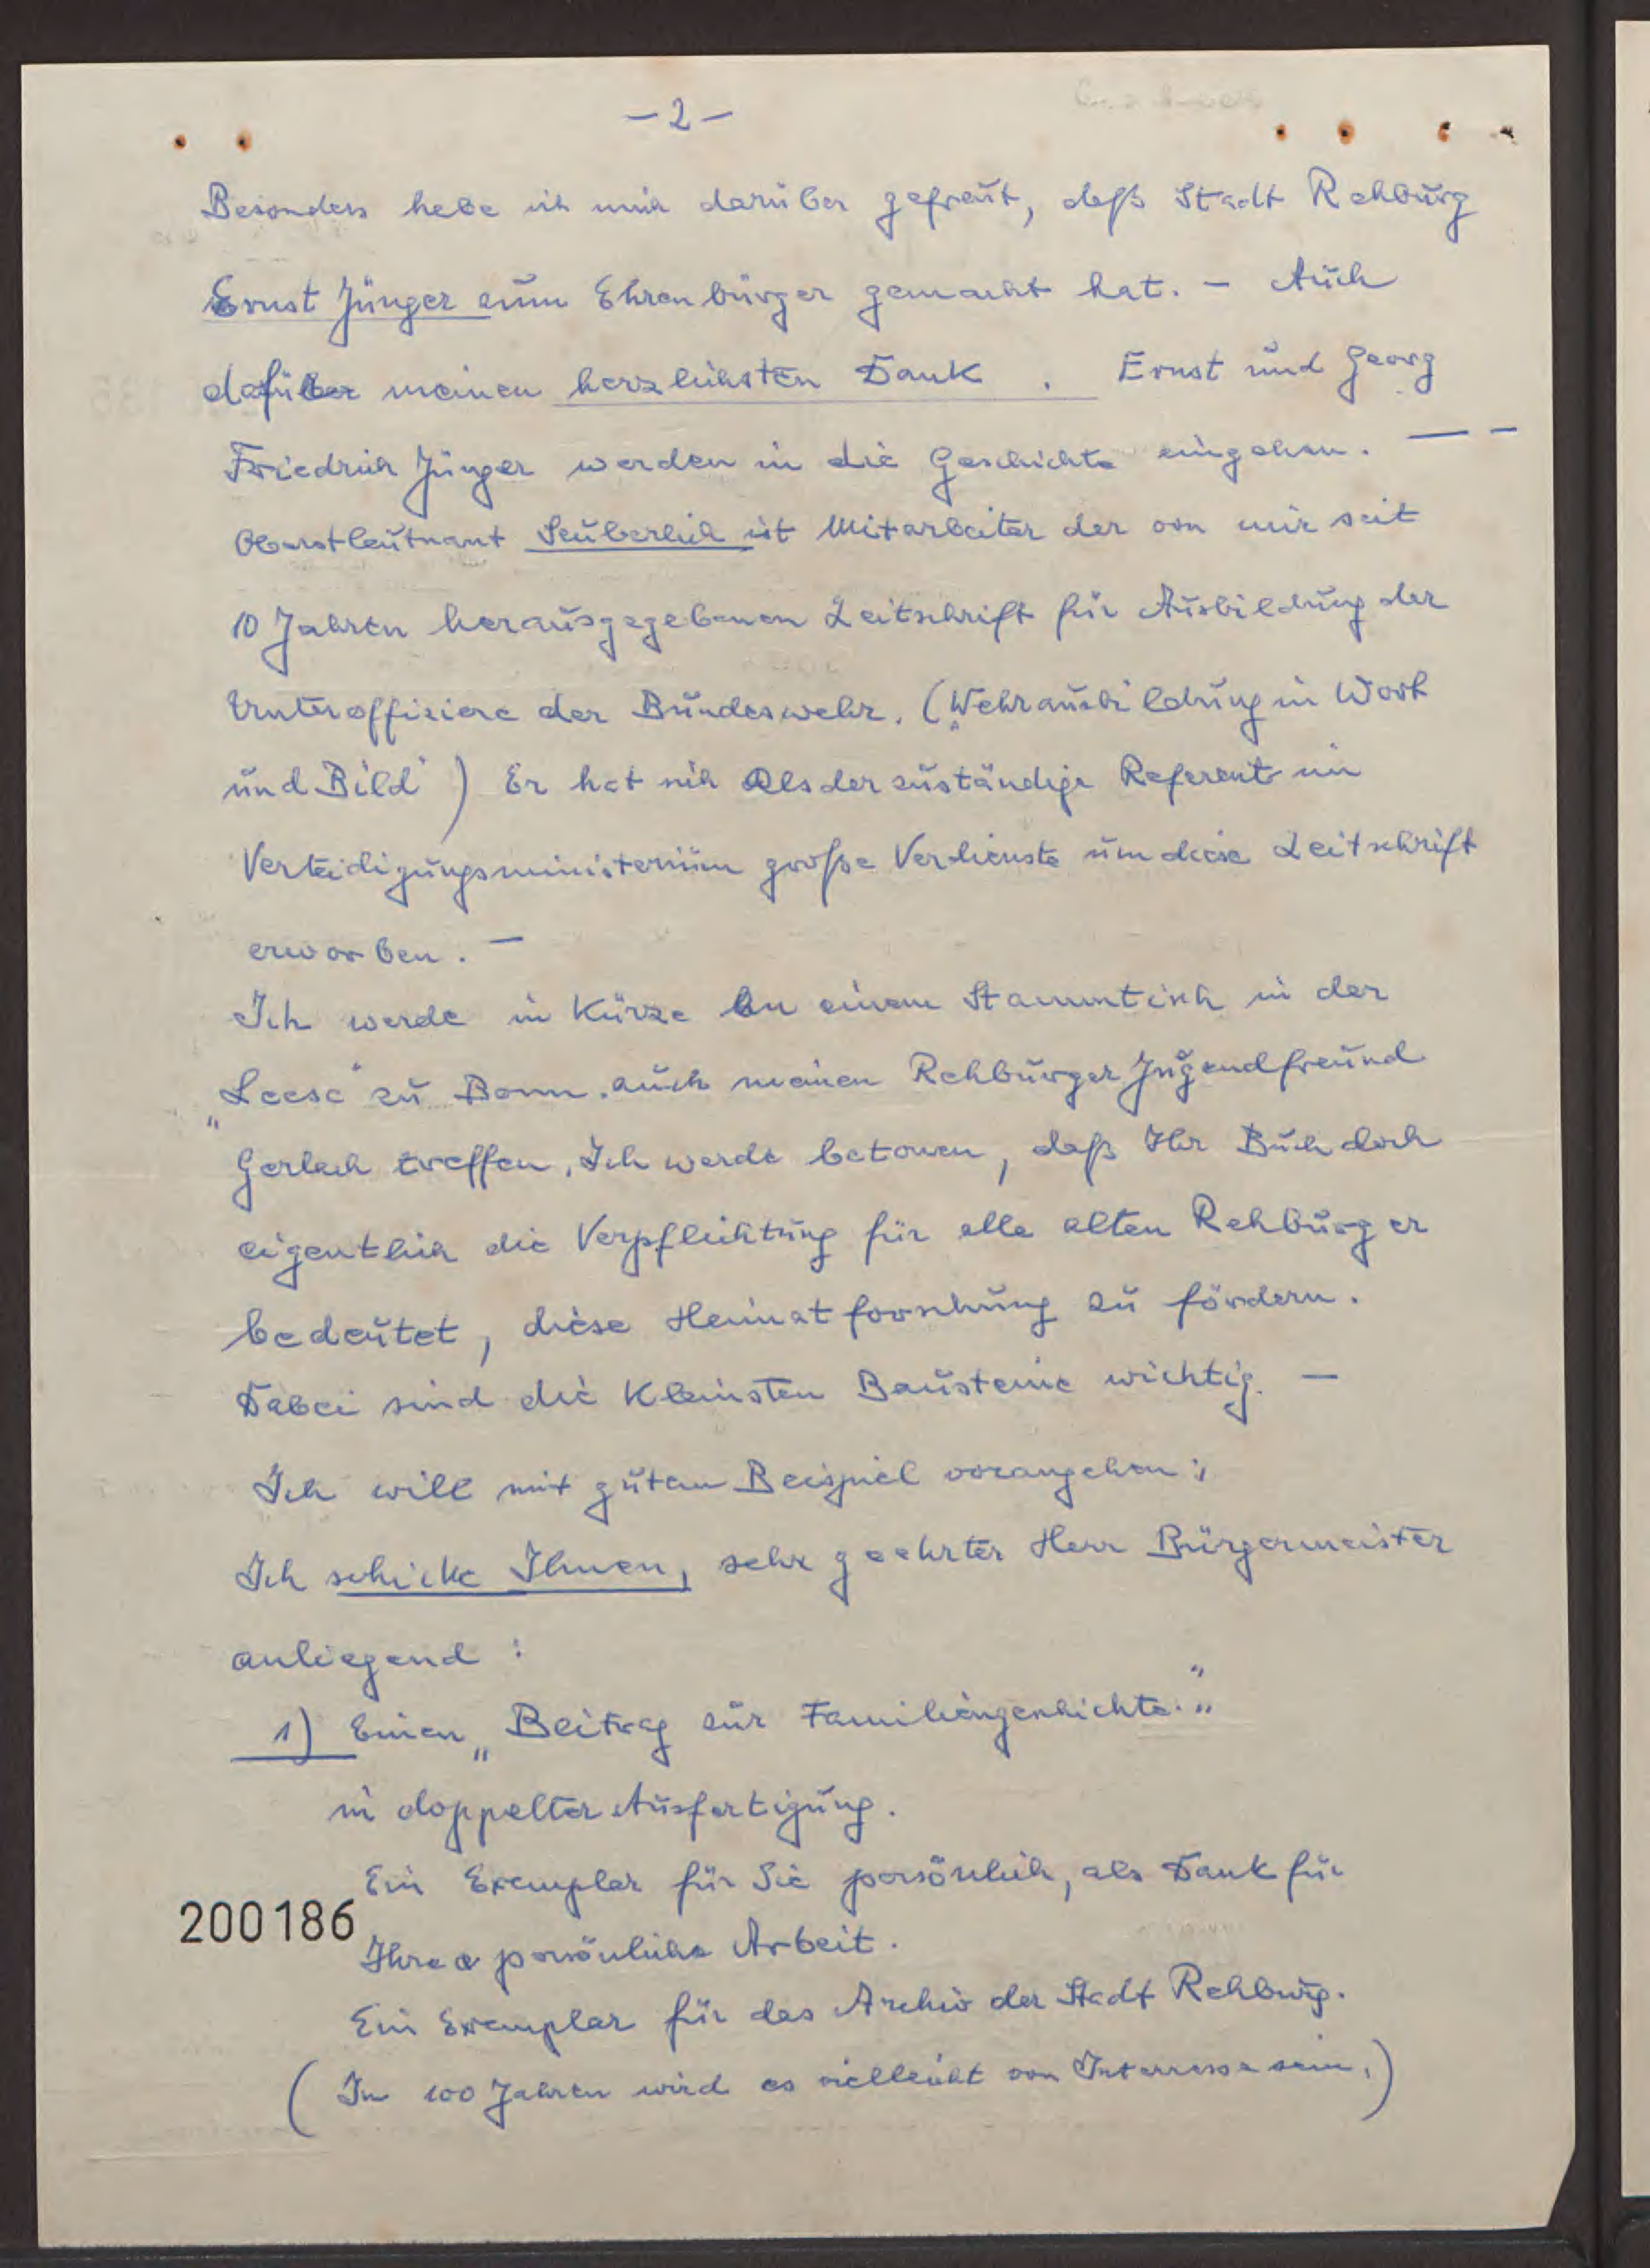 - 2 -
Besonders habe ich mich darüber gefreut, daß Stadt Rehburg
Ernst Jünger zum Ehrenbürger gemacht hat. - Auch
dafür meinen herzlichsten Dank . Ernst und Georg
Friedrich Jünger werden in die Geschichte eingehen. — -
Oberstleutnant Seuberlich ist Mitarbeiter der von mir seit
10 Jahren herausgegebenen Zeitschrift für Ausbildung der
Unteroffiziere der Bundeswehr. („Wehrausbildung in Wort
und Bild") Er hat sich als der zuständige Referent im
Verteidigungsministerium große Verdienste um diese Zeitschrift
erworben. -
Ich werde in Kürze an einem Stammtisch in der
„Leese" zu Bonn, auch meinen Rehburger Jugendfreund
Gerlach treffen. Ich werde betonen, daß Ihr Buch doch
eigentlich die Verpflichtung für alle alten Rehburger
bedeutet, diese Heimatforschung zu fördern.
Dabei sind die kleinsten Bausteine wichtig. -
Ich will mit gutem Beispiel vorangehen:
Ich schicke Ihnen, sehr geehrter Herr Bürgermeister
anliegend :
1) Einen „Beitrag zur Familiengeschichte."
in doppelter Ausfertigung.
Ein Exemplar für Sie persönlich, als Dank für
200186
Ihre persönliche Arbeit.
Ein Exemplar für das Archiv der Stadt Rehburg.
(In 100 Jahren wird es vielleicht von Interresse sein.)